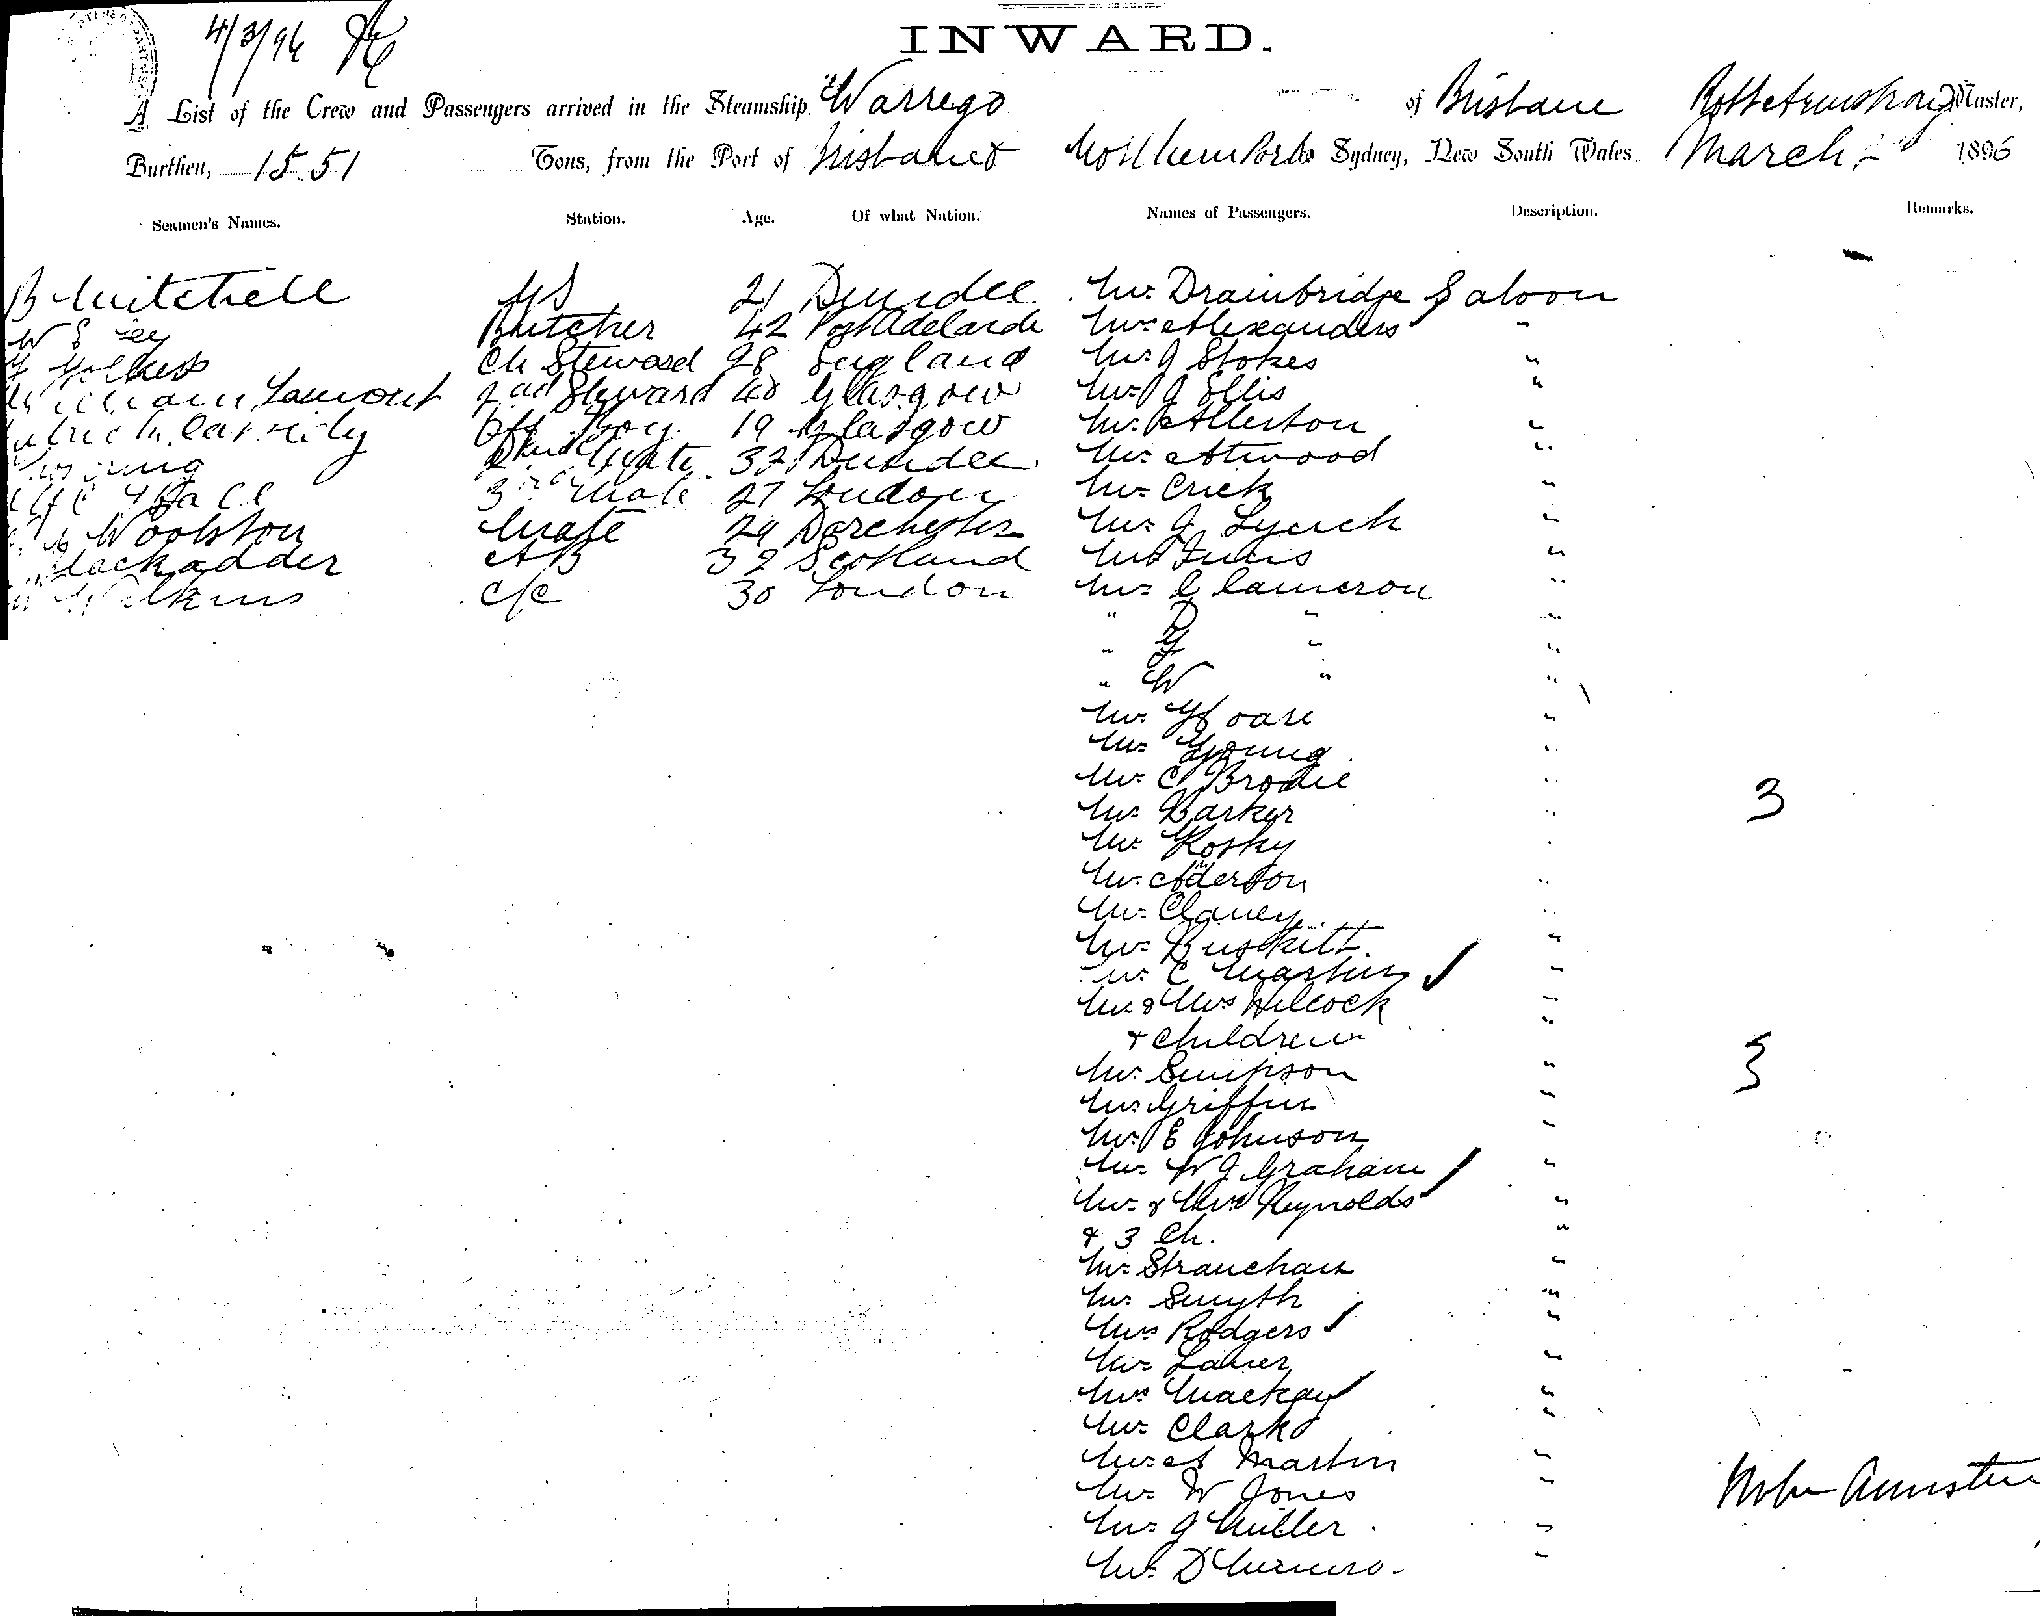 4/3/96
INWARD.
A List of the Crew and Passengers arrived in the Steamship Warrego of Brisbane Master,
Burthen, 1551 Tons, from the Port of Brisbane & Northern Ports Sydney, New South Wales March 1896
Seamen's Names. Station. Age. Of what Nation. Names of Passengers. Description. Remarks.
B Mitchell 21 Dundee Mr. Drainbridge Saloon
W Butcher 42 Port Adelaide Mr. Alexanders "
Ch Steward 28 England Mr. J Stokes "
William Lamont 2nd Steward 40 Glasgow Mr. J Ellis "
Boy 19 Glasgow Mr. Allerton "
Mate 32 Dundee Mr. Attwood "
Hall 3rd Mate 27 London Mr. Crick "
Woolston Mate 29 Dorchester Mr. J Lynch "
Blackadder AB 32 Scotland "
Wilkins 30 London Mr. C Cameron "
" D " "
" G " "
" W " "
Mr. Hoare "
Mr. Young "
Mr. C Brodie "
Mr. Barker " 3
Mr. "
Mr. Anderson "
Mr. Clancy "
Mr. "
Mr. C Martin "
Mr. & Mrs Wilcock "
& Children "
Mr. Simpson " 3
Mr. Griffin "
Mr. E Johnson "
Mr. W J Graham "
Mr. & Mrs Reynolds "
& 3 Ch. "
Mr. Strauchan "
Mr. Smyth "
Mrs Rodgers "
Mr. "
Mrs Mackay "
Mr. Clark "
Mr. A Martin "
Mr. W Jones "
Mr. J Miller "
Mr. D Munro "